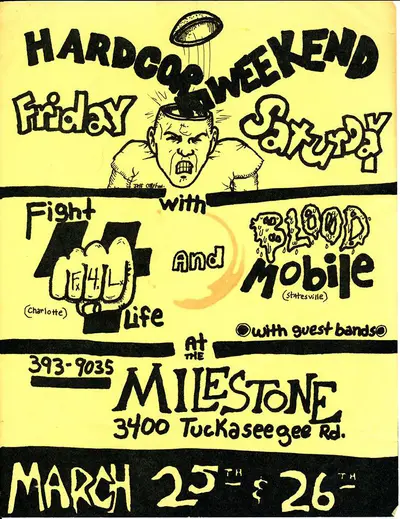 HARDCORE WEEKEND
Friday
Saturday
with
Fight
4
F4L
Life
(Charlotte)
And
BLOOD
Mobile
(Statesville)
with guest bands
At
THE
393-9035
MILESTONE
3400 Tuckaseegee Rd.
MARCH 25TH & 26TH